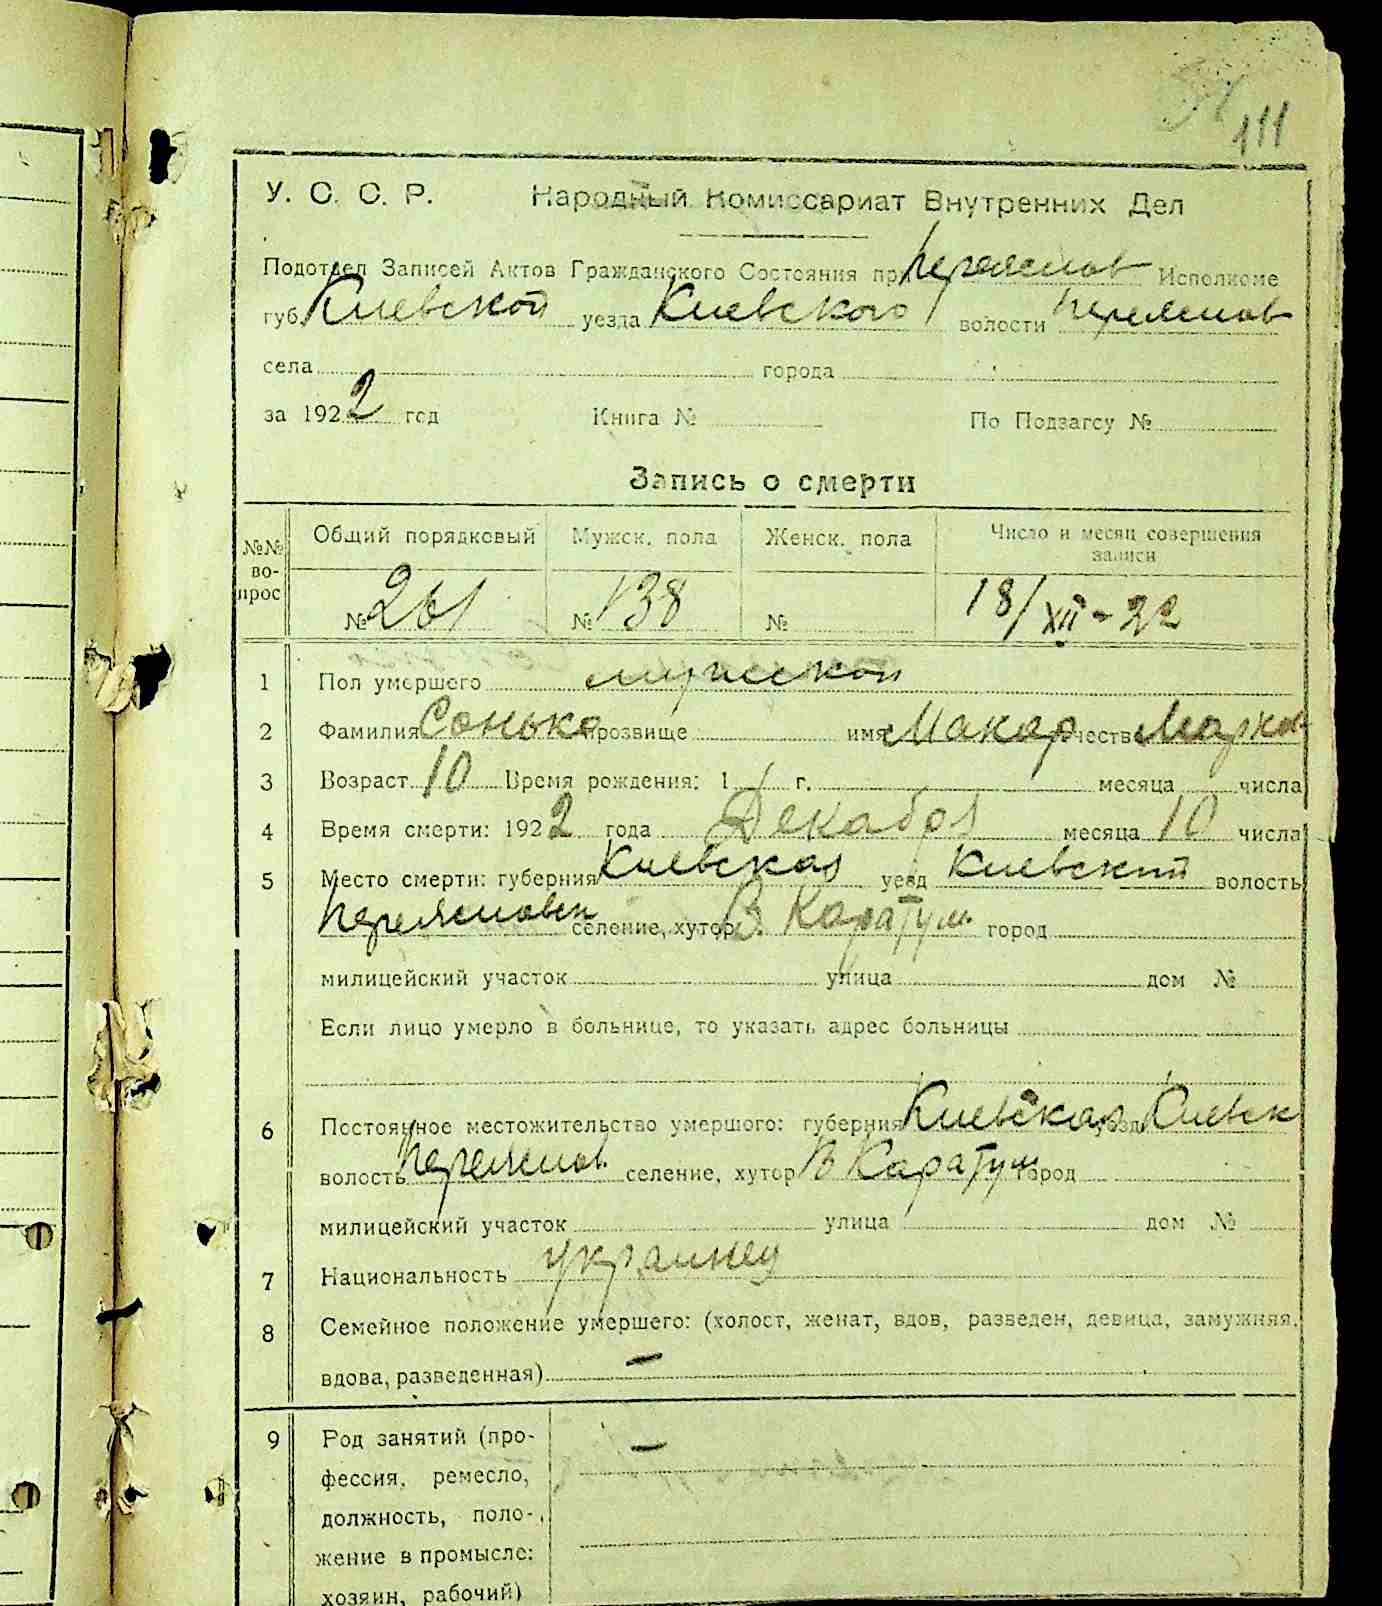 111
У. С. С. Р. Народный Комиссариат Внутренних Дел
Подотдел Записей Актов Гражданского Состояния при Переяслов Исполкоме
губ. Киевской уезда Киевского волости Переяслов
села города
за 1922 год Книга № По Подзагсу №
Запись о смерти
№№ вопрос Общий порядковый Мужск. пола Женск. пола Число и месяц совершения записи
№ 261 № 138 № 18/XII-22
1 Пол умершего мужской
2 Фамилия Сонько прозвище имя Макар отчество Марков
3 Возраст 10 Время рождения: 1 г. месяца числа
4 Время смерти: 1922 года Декабря месяца 10 числа
5 Место смерти: губерния Киевская уезд Киевский волость
Переясловск селение, хутор В. Каратул город
милицейский участок улица дом №
Если лицо умерло в больнице, то указать адрес больницы
6 Постоянное местожительство умершого: губерния Киевская уезд Киевск
волость Переяслов. селение, хутор В Каратул город
милицейский участок улица дом №
7 Национальность украинец
8 Семейное положение умершего: (холост, женат, вдов, разведен, девица, замужняя,
вдова, разведенная) —
9 Род занятий (про- —
фессия, ремесло,
должность, поло-
жение в промысле:
хозяин, рабочий)